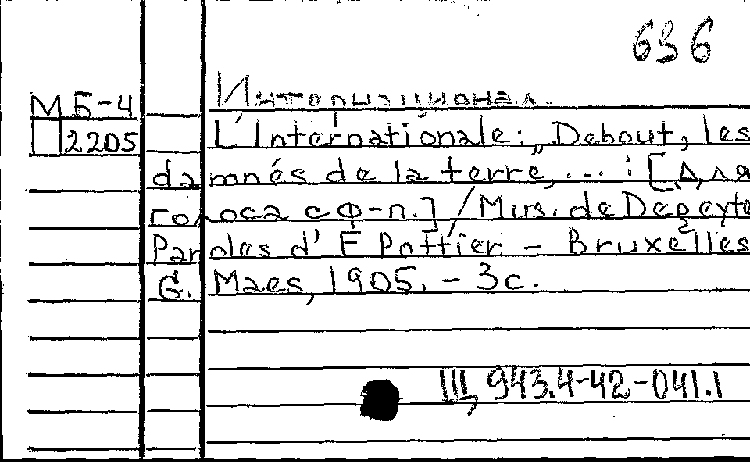 636
МБ-4
2205
Интернационал.
L'Internationale: „Debout, les
damnés de la terre, ... : [Для
голоса с ф-п.] / Mus. de Degeyte
Paroles d' E Pottier - Bruxelles
G. Maes, 1905. - 3с.
Щ 943.4-42-041.1